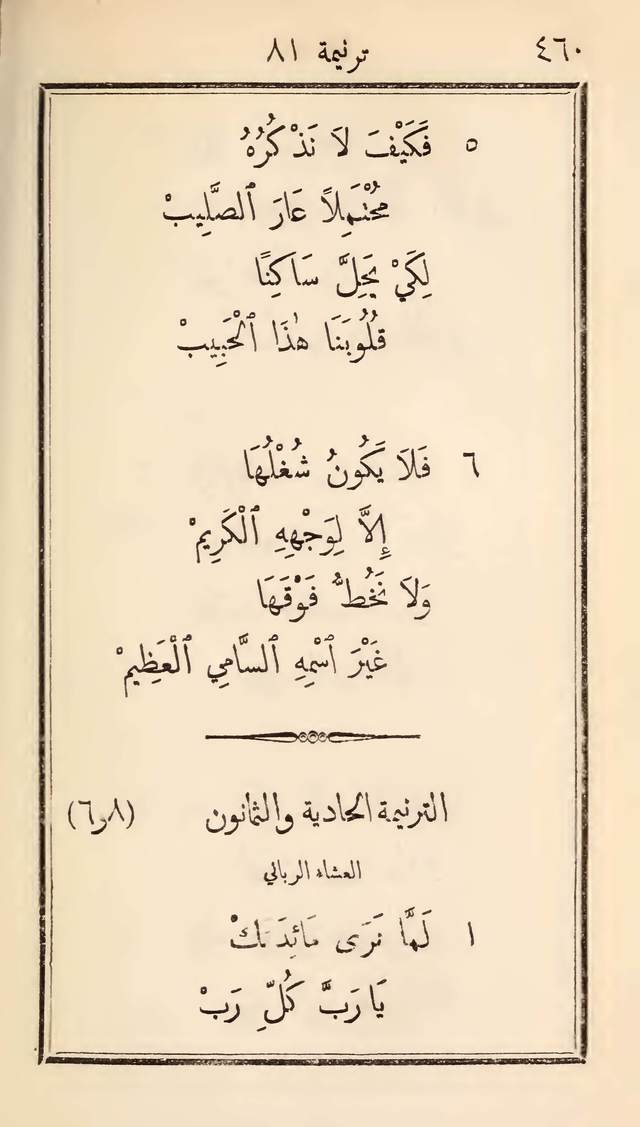 ٤٦٠ ترنيمة ٨١
٥ فَكَيْفَ لاَ نَذْكُرُهُ
مُحْتَمِلاً عَارَ ٱلصَّلِيبْ
لِكَيْ يَحِلَّ سَاكِنًا
قُلُوبَنَا هٰذَا ٱلْحَبِيبْ
٦ فَلاَ يَكُونُ شُغْلُهَا
إِلاَّ لِوَجْهِهِ ٱلْكَرِيمْ
وَلاَ نَخُطُّ فَوْقَهَا
غَيْرَ ٱسْمِهِ ٱلسَّامِي ٱلْعَظِيمْ
الترنيمة الحادية والثمانون (٨و٦)
العشاء الرباني
١ لَمَّا نَرَى مَائِدَتَكْ
يَا رَبَّ كُلِّ رَبْ